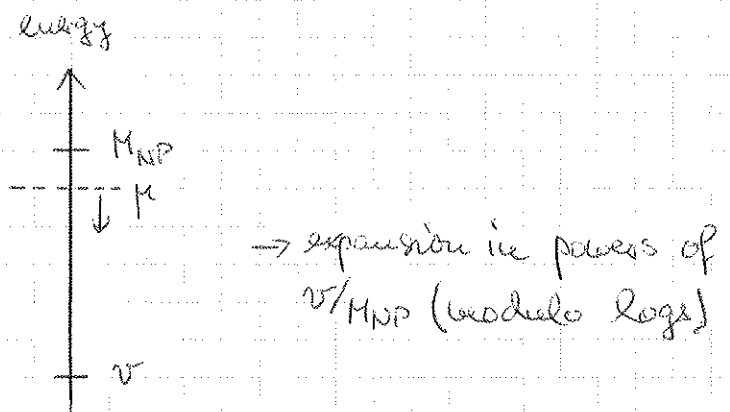 energy
M_NP
μ
→ expansion in powers of
v/M_NP (modulo logs)
v